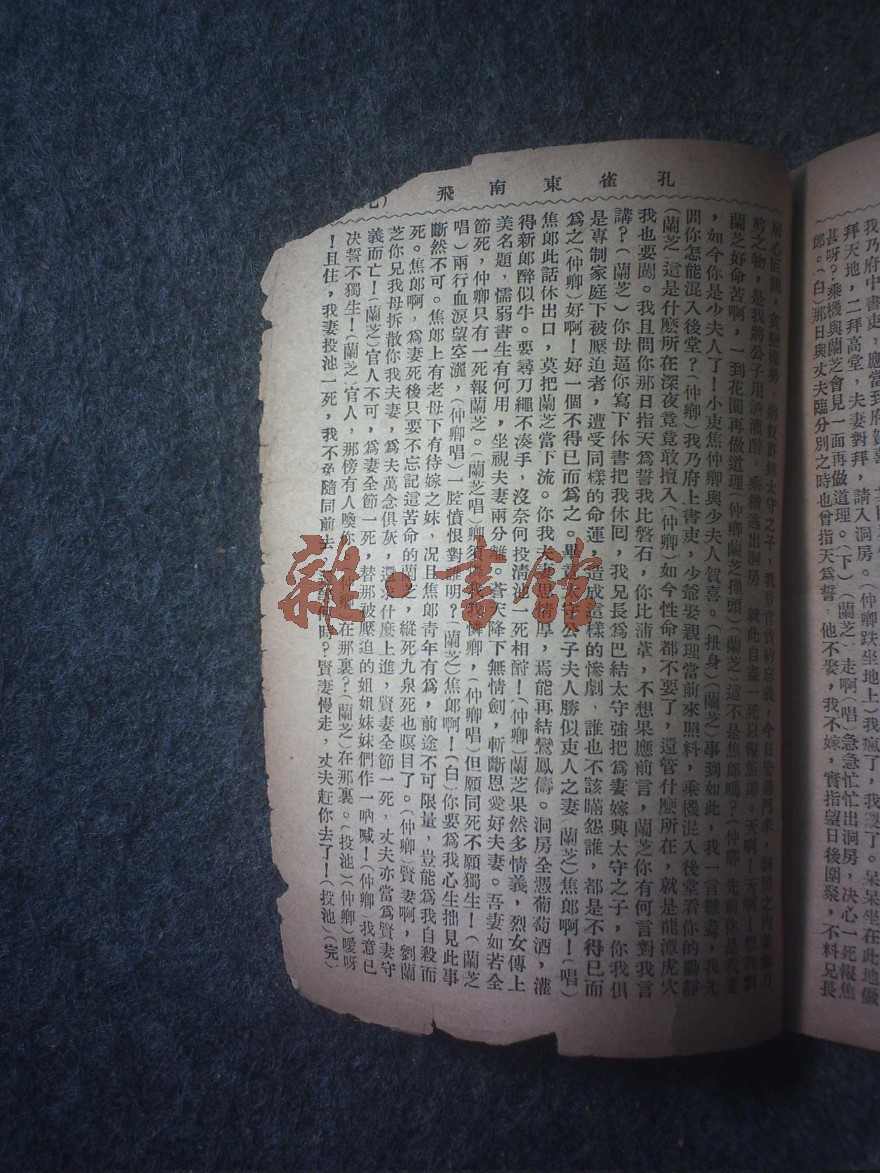 我乃府中書吏，應當到府賀喜
拜天地，二拜高堂，夫妻對拜，請入洞房。（仲卿跌坐地上）我瘋了，我呆了。呆呆坐在此地
甚呀？乘機與蘭芝會見一面再做道理。（下）（蘭芝）走啊（唱）急急忙忙出洞房，决心一死報焦
郎。（白）那日與丈夫臨分別之時也曾指天爲誓，他不娶，我不嫁，實指望日後團聚，不料兄長
孔雀東南飛
太守之子，我
剪之物，是我將公子用酒灌醉，乘機逃出洞房，就此自盡一死以報焦郎。天啊！天啊！想我劉
蘭芝好命苦啊，一到花園再做道理（仲卿蘭芝撞頭）（蘭芝）這不是焦郎嗎？（仲卿）先前你是我妻
，如今你是少夫人了！小吏焦仲卿與少夫人賀喜。（扭身）（蘭芝）事到如此，我一言難盡，我先
問你怎能混入後堂？（仲卿）我乃府上書吏，少爺娶親理當前來照料，乘機混入後堂看你的動靜
（蘭芝）這是什麼所在深夜竟竟敢擅入（仲卿）如今性命都不要了，還管什麼所在，就是龍潭虎穴
我也要闖。我且問你那日指天爲誓我比磐石，你比蒲葦，不想果應前言，蘭芝你有何言對我言
講？（蘭芝）你母逼你寫下休書把我休回，我兄長爲巴結太守強把爲妻嫁與太守之子，你我俱
是專制家庭下被壓迫者，遭受同樣的命運，造成這樣的慘劇，誰也不該瞞怨誰，都是不得已而
爲之（仲卿）好啊！好一個不得已而爲之。畢竟太守公子夫人勝似吏人之妻（蘭芝）焦郎啊！（唱）
焦郎此話休出口，莫把蘭芝當下流。你我夫妻恩情厚，焉能再結鸞鳳儔。洞房全憑葡萄酒，灌
得新郎醉似牛。要尋刀繩不湊手，沒奈何投清池一死相酧！（仲卿）蘭芝果然多情義，烈女傳上
美名題，懦弱書生有何用，坐視夫妻兩分離。蒼天降下無情劍，斬斷恩愛好夫妻。吾妻如若全
節死，仲卿只有一死報蘭芝。（蘭芝唱）卿須憐我我憐卿，（仲卿唱）但願同死不願獨生！（蘭芝
唱）兩行血淚望空灑，（仲卿唱）一腔憤恨對誰明？（蘭芝）焦郎啊！（白）你要爲我心生拙見此事
斷然不可。焦郎上有老母下有待嫁之妹，况且焦郎青年有爲，前途不可限量，豈能爲我自殺而
死。焦郎啊，爲妻死後只要不忘記這苦命的蘭芝，縱死九泉死也瞑目了。（仲卿）賢妻啊，劉蘭
芝你兄我母拆散你我夫妻，爲夫萬念俱灰，還求什麼上進，賢妻全節一死，丈夫亦當爲賢妻守
義而亡！（蘭芝）官人不可，爲妻全節一死，替那被壓迫的姐姐妹妹們作一吶喊！（仲卿）我意已
决誓不獨生！（蘭芝）官人，那傍有人喚你（仲卿）在那裏？（蘭芝）在那裏。（投池）（仲卿）噯呀
！且住，我妻投池一死，我不免隨同前去，時？賢妻慢走，丈夫赶你去了！（投池）（完）
雜·書館